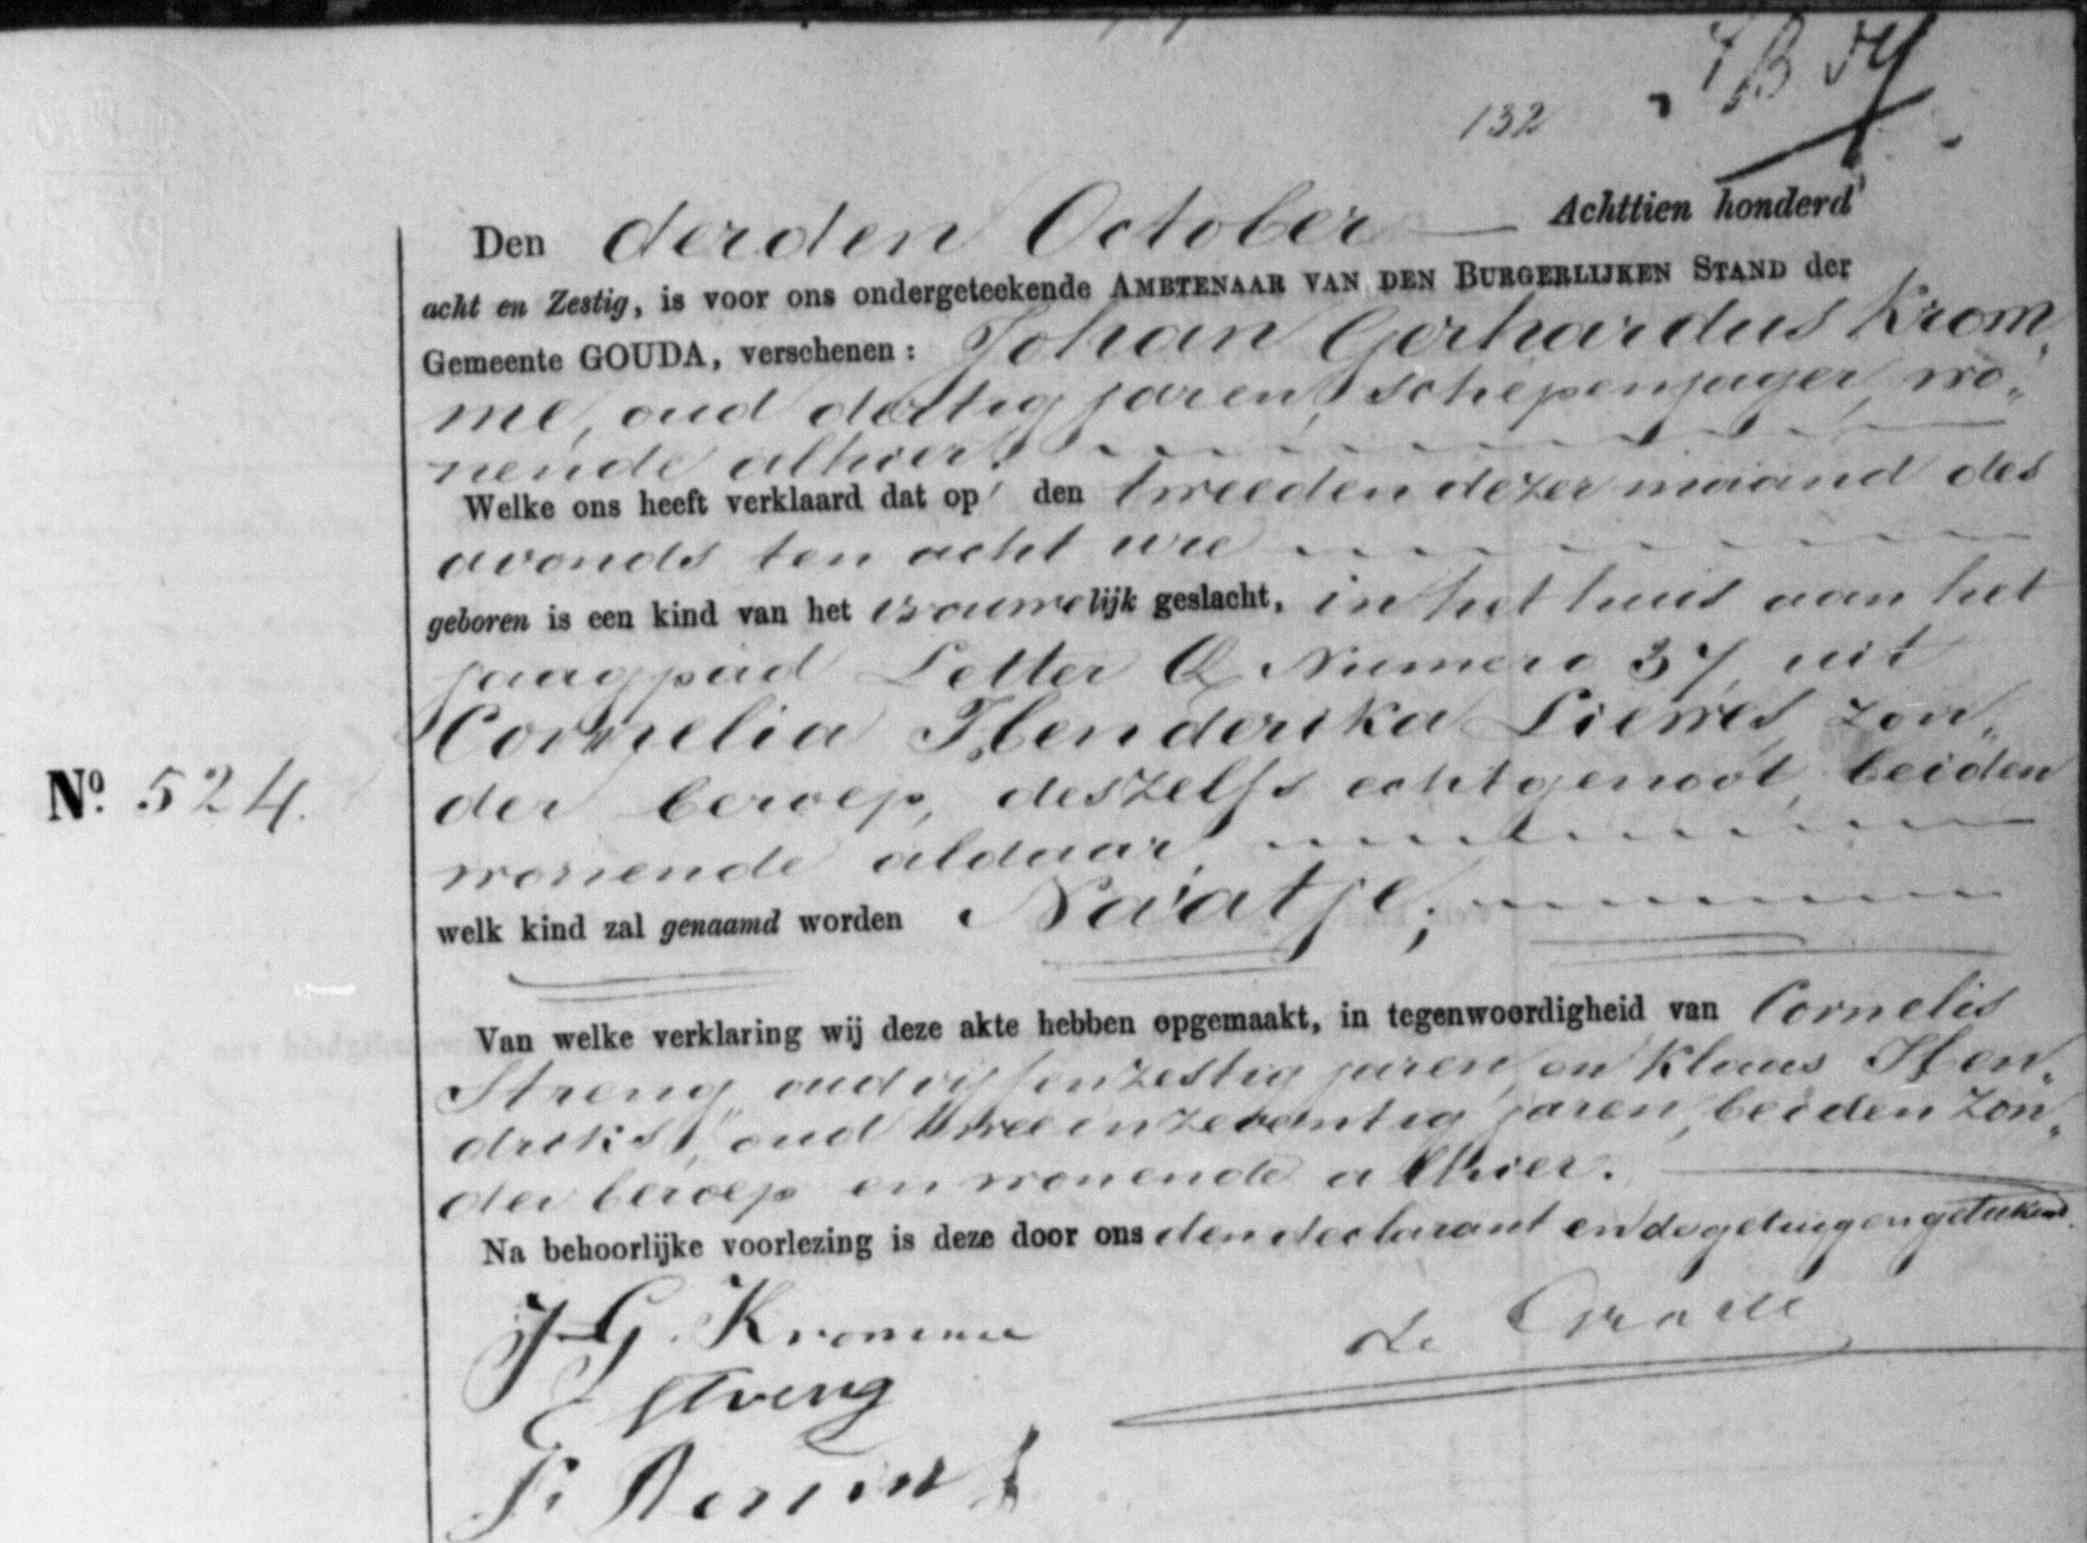 132
Den derden October Achttien honderd
acht en Zestig, is voor ons ondergeteekende AMBTENAAR VAN DEN BURGERLIJKEN STAND der
Gemeente GOUDA, verschenen: Johan Gerhardus Krom„
me, oud dertig jaren, schepenjager, wo„
nende alhier.
Welke ons heeft verklaard dat op den tweeden dezer maand des
avonds ten acht ure
geboren is een kind van het vrouwelijk geslacht, in het huis aan het
jaagpad Letter Q Numero 37, uit
Cornelia Henderika Liewes, zon„
der beroep, deszelfs echtgenoot, beiden
wonende aldaar,
No. 524.
welk kind zal genaamd worden Naatje;
Van welke verklaring wij deze akte hebben opgemaakt, in tegenwoordigheid van Cornelis
Streng, oud vijfenzestig jaren, en Klaas Hen„
driks, oud tweeenzeventig jaren, beiden zon„
der beroep en wonende alhier.
Na behoorlijke voorlezing is deze door ons den declarant en de getuigen geteekend.
J G. Kromme
C Streng